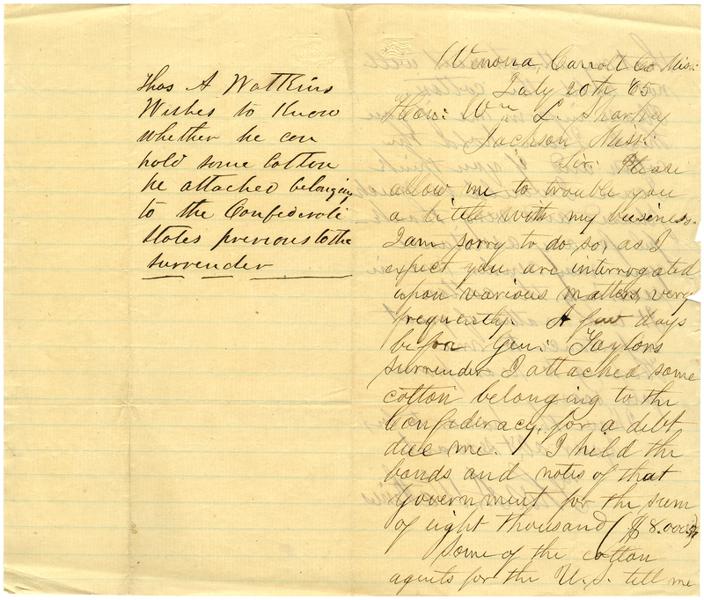 Thos A Watkins
Wishes to Know
whether he can
hold some Cotton
he attached belonging
to the Confederate
States previous to the
surrender
Winona, Carroll Co Miss:
July 20th '65
Hon: Wm L. Sharkey
Jackson Miss:
Sir: Please
allow me to trouble you
a little with my business.
I am sorry to do so, as I
expect you are interrogated
upon various matters very
frequently. A few days
before Gen: Taylors
surrender I attached some
cotton belonging to the
Confederacy, for a debt
due me. I held the
bonds and notes of that
government for the sum
of eight thousand ($8.000
Some of the cotton
agents for the U.S. tell me